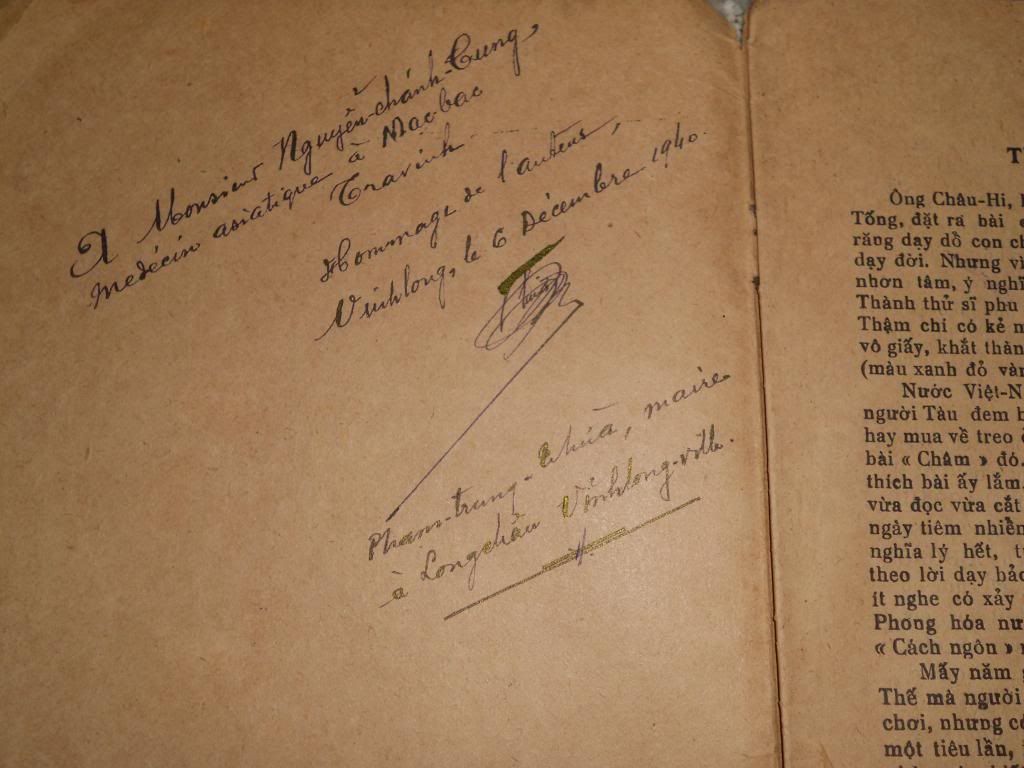 A Monsieur Nguyễn-chánh-Cung,
medécin asiatique à Mạcbac
Travinh
Hommage de l'auteur,
Vinhlong, le 6 Décembre 1940.
Phạm-trung-Thừa, maire
à Longchâu Vĩnhlong-ville.
T
Ông Châu-Hi,
Tống, đặt ra bài
răng dạy dỗ con
dạy đời. Nhưng
nhơn tâm, ý
Thành thử sĩ phu
Thậm chí có kẻ
vô giấy, khắt
(màu xanh đỏ
Nước
người Tàu đem
hay mua về treo
bài « Châm » đó.
thích bài ấy lắm.
vừa đọc vừa cắt
ngày tiêm nhiễm
nghĩa lý hết,
theo lời dạy
ít nghe có xảy
Phong hóa
« Cách ngôn »
Mấy năm
Thế mà người
chơi, nhưng
một tiêu lần,